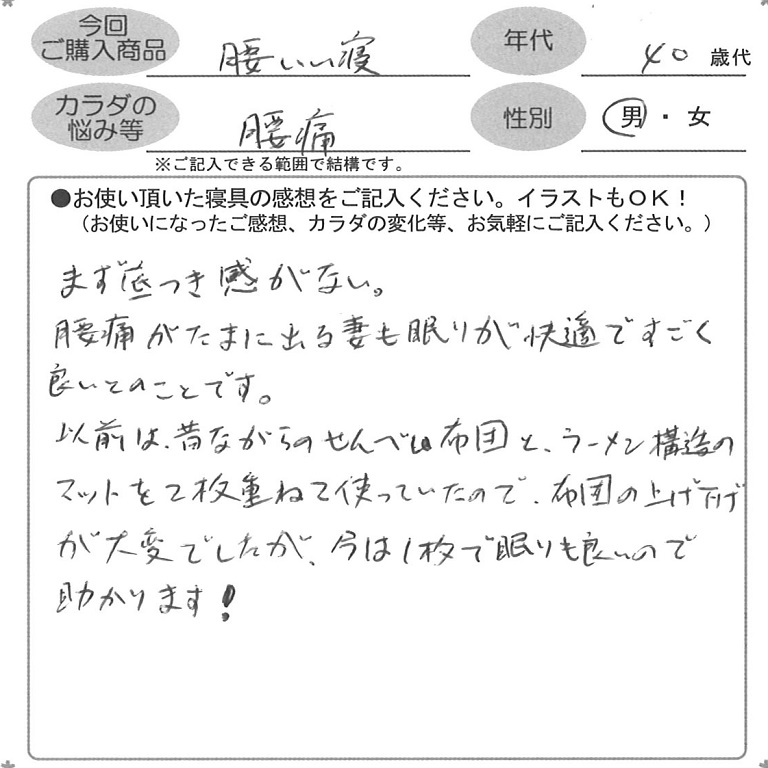 今回
ご購入商品
腰いい寝
年代
40 歳代
カラダの
悩み等
腰痛
性別
男・女
※ご記入できる範囲で結構です。
●お使い頂いた寝具の感想をご記入ください。イラストもOK!
(お使いになったご感想、カラダの変化等、お気軽にご記入ください。)
まず底つき感がない。
腰痛がたまに出る妻も眠りが快適ですごく
良いとのことです。
以前は、昔ながらのせんべい布団と、ラーメン構造の
マットを2枚重ねて使っていたので、布団の上げ下げ
が大変でしたが、今は1枚で眠りも良いので
助かります!